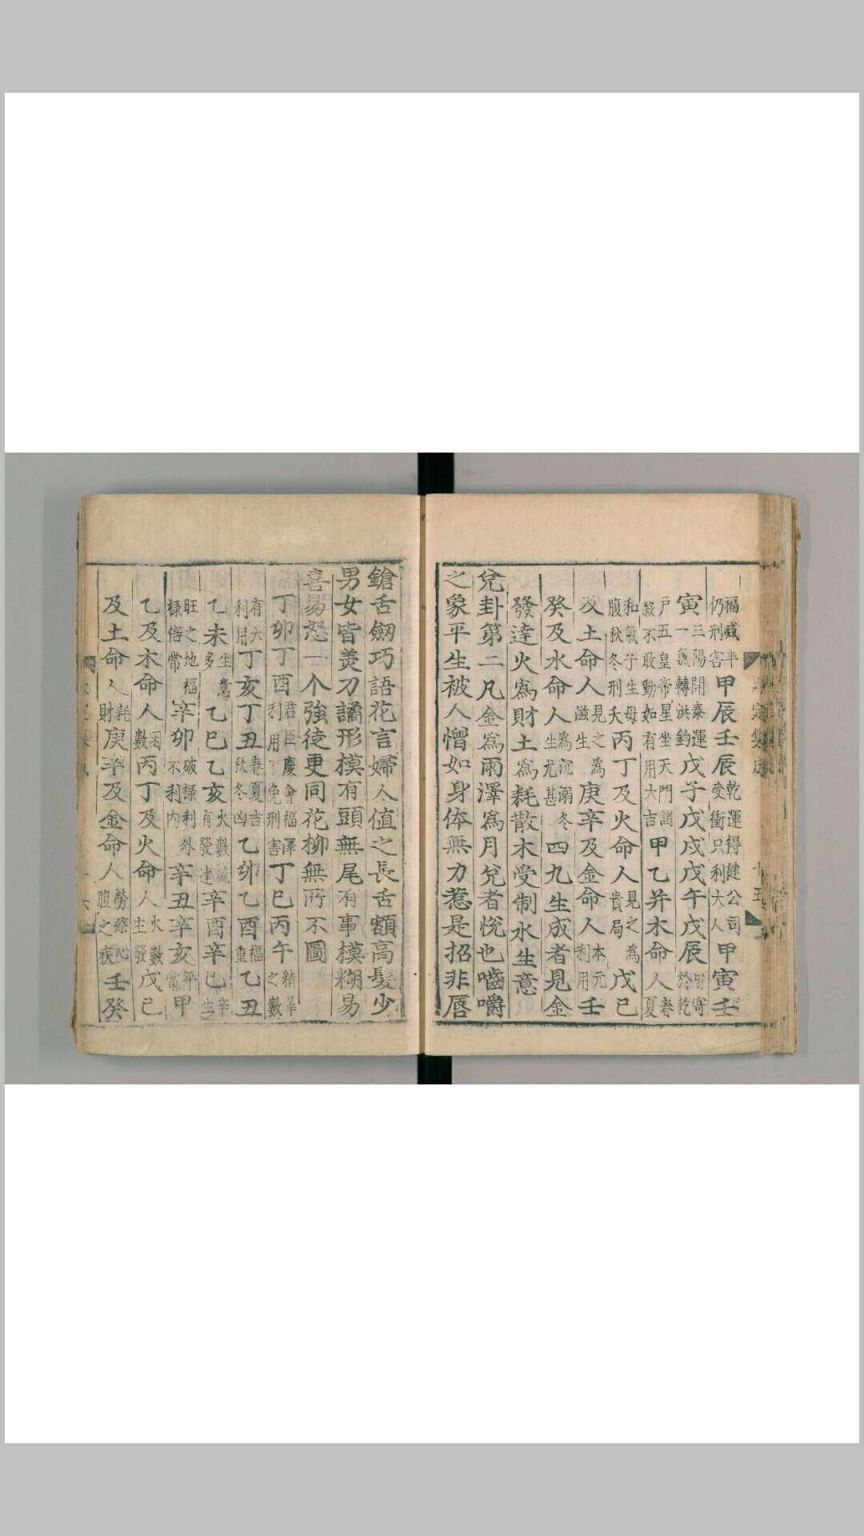 福咸半仍刑害甲辰壬辰乾運得健公司受衝只利大人甲寅壬
寅三陽開泰運一氣轉洪鈞戊子戊戌戊午戊辰財寄於乾
戶五皇帝星坐天門諸殺不敢動如有用大吉甲乙并木命人春夏
和氣子生母腹秋冬刑夭丙丁及火命人見之為貴局戊己
及土命人見之為滋生庚辛及金命人本元利用壬
癸及水命人為沉溺冬生尤甚四九生成者見金
發達火為財土為耗散木受制水生意
兌卦第二凡金為雨澤為月兌者悅也嚙嚼
之象平生被人憎如身体無力惹是招非唇
鎗舌劒巧語花言婦人值之長舌額高髮少
男女皆羙刀譎形模有頭無尾有事模糊易
喜易怒一个強徒更同花柳無所不圖
丁卯丁酉君臣慶會福澤利用免刑害丁巳丙午精華之數
有大利用丁亥丁丑春夏吉秋冬凶乙卯乙酉福重乙丑
乙未生意多乙巳乙亥火數有發達辛酉辛巳
旺之地福祿俗常辛卯破緣利外不利内辛丑辛亥平常甲
乙及木命人因數丙丁及火命人火數主發戊己
及土命人耗財庚辛及金命人勞瘵心腹之疾壬癸